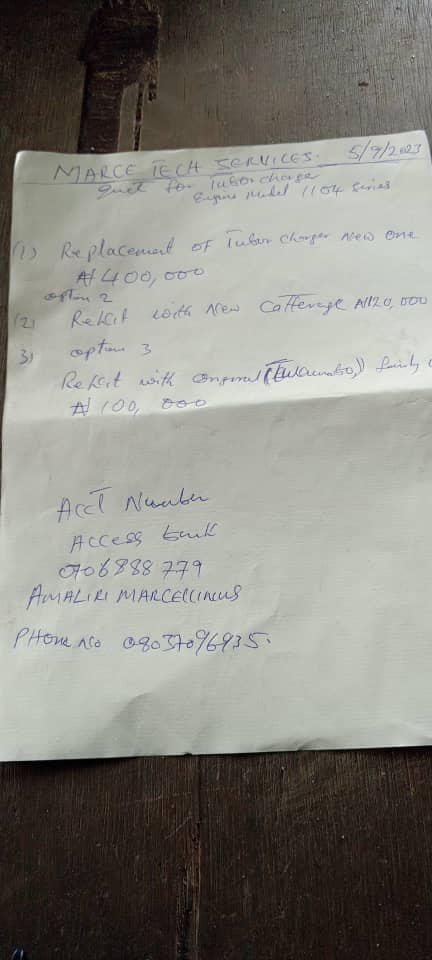 MARCE TECH SERVICES. 5/9/2023
Quet for Tubor charge
Engine Model 1104 Series
(1) Replacement of Tubor Charger New One
₦400,000
option 2
(2) Rekit with New Catterege ₦120,000
3) option 3
Rekit with family
₦100,000
Acct Number
Access bank
0706888779
AMALIRI MARCELLINUS
PHone No 08037096935.